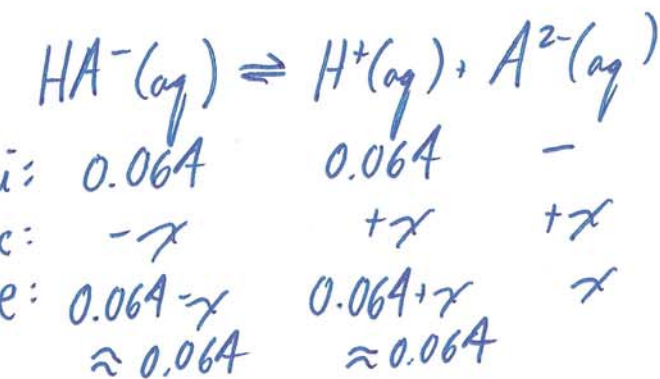 HA⁻(aq) ⇌ H⁺(aq) + A²⁻(aq)
i: 0.064 0.064 -
c: -x +x +x
e: 0.064-x 0.064+x x
≈ 0.064 ≈ 0.064